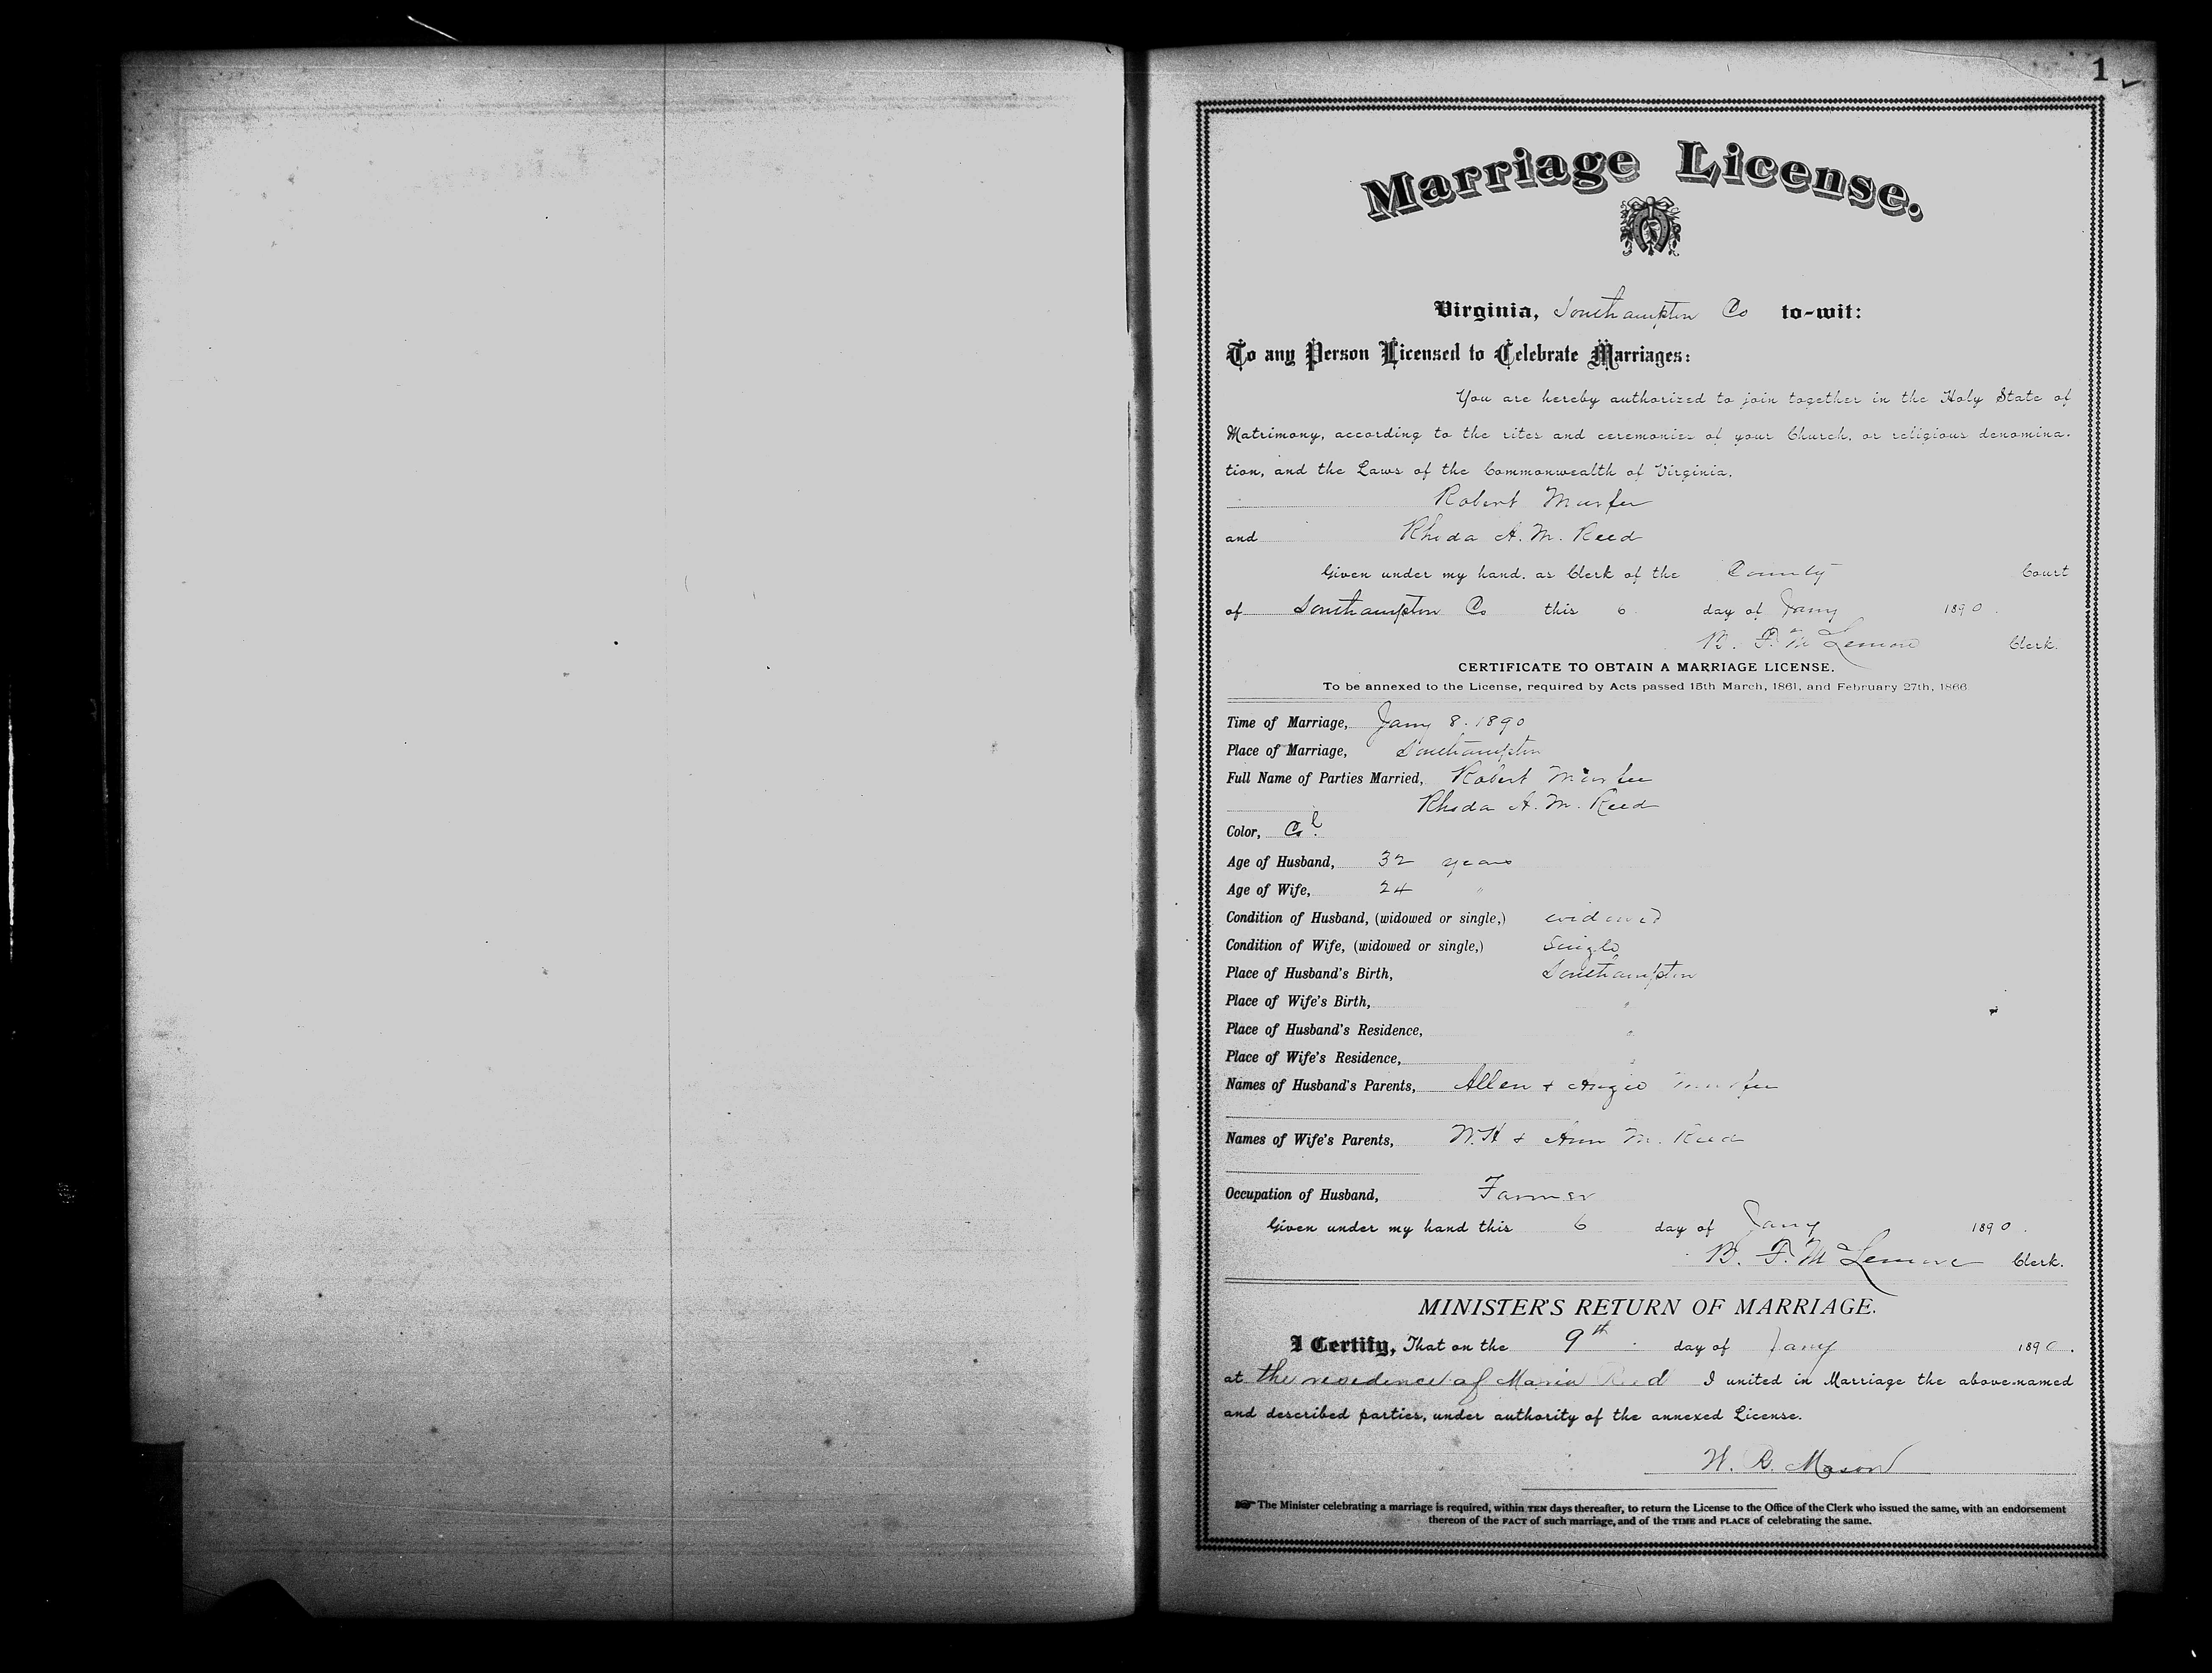 1
Marriage License.
Virginia, Southampton Co to-wit:
To any Person Licensed to Celebrate Marriages:
You are hereby authorized to join together in the Holy State of
Matrimony, according to the rites and ceremonies of your Church, or religious denomina-
tion, and the Laws of the Commonwealth of Virginia.
Robert Murfee
and Rhoda A. M. Reed
Given under my hand, as Clerk of the County Court
of Southampton Co this 6 day of Jany 1890.
B. F. McLemore Clerk.
CERTIFICATE TO OBTAIN A MARRIAGE LICENSE.
To be annexed to the License, required by Acts passed 15th March, 1861, and February 27th, 1866
Time of Marriage, Jany 8. 1890
Place of Marriage, Southampton
Full Name of Parties Married, Robert Murfee
Rhoda A. M. Reed
Color, Col.
Age of Husband, 32 years
Age of Wife, 24 "
Condition of Husband, (widowed or single,) widowed
Condition of Wife, (widowed or single,) Single
Place of Husband's Birth, Southampton
Place of Wife's Birth, "
Place of Husband's Residence, "
Place of Wife's Residence, "
Names of Husband's Parents, Allen + Angie Murfee
Names of Wife's Parents, W. H + Ann M. Reed
Occupation of Husband, Farmer
Given under my hand this 6 day of Jany 1890.
B. F. McLemore Clerk.
MINISTER'S RETURN OF MARRIAGE.
I Certify, That on the 9th day of Jany 1890.
at the residence of Maria Reed I united in Marriage the above-named
and described parties, under authority of the annexed License.
W. B. Mason
The Minister celebrating a marriage is required, within TEN days thereafter, to return the License to the Office of the Clerk who issued the same, with an endorsement
thereon of the FACT of such marriage, and of the TIME and PLACE of celebrating the same.